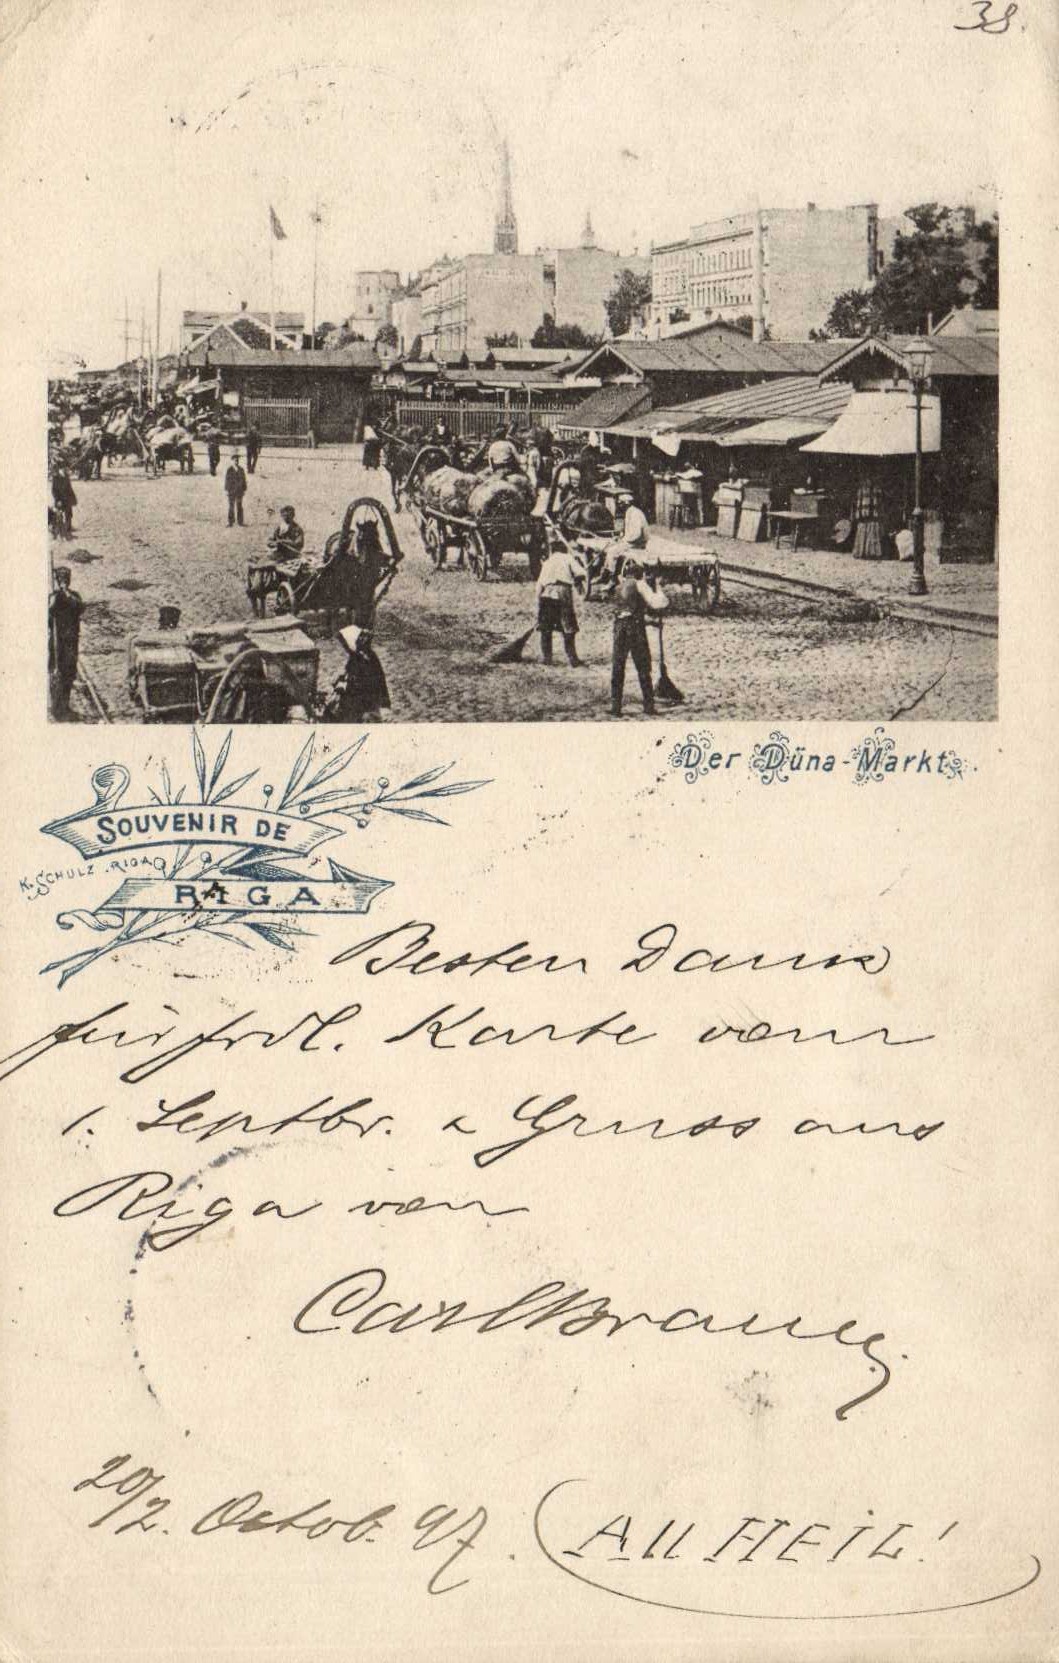 38.
Der Düna-Markt.
SOUVENIR DE
K. SCHULZ. RIGA
RIGA
Besten Dank
für frdl. Karte vom
1. Septbr. & Gruss aus
Riga von
Carl
20/2. Octob. 97.
All HEiL!